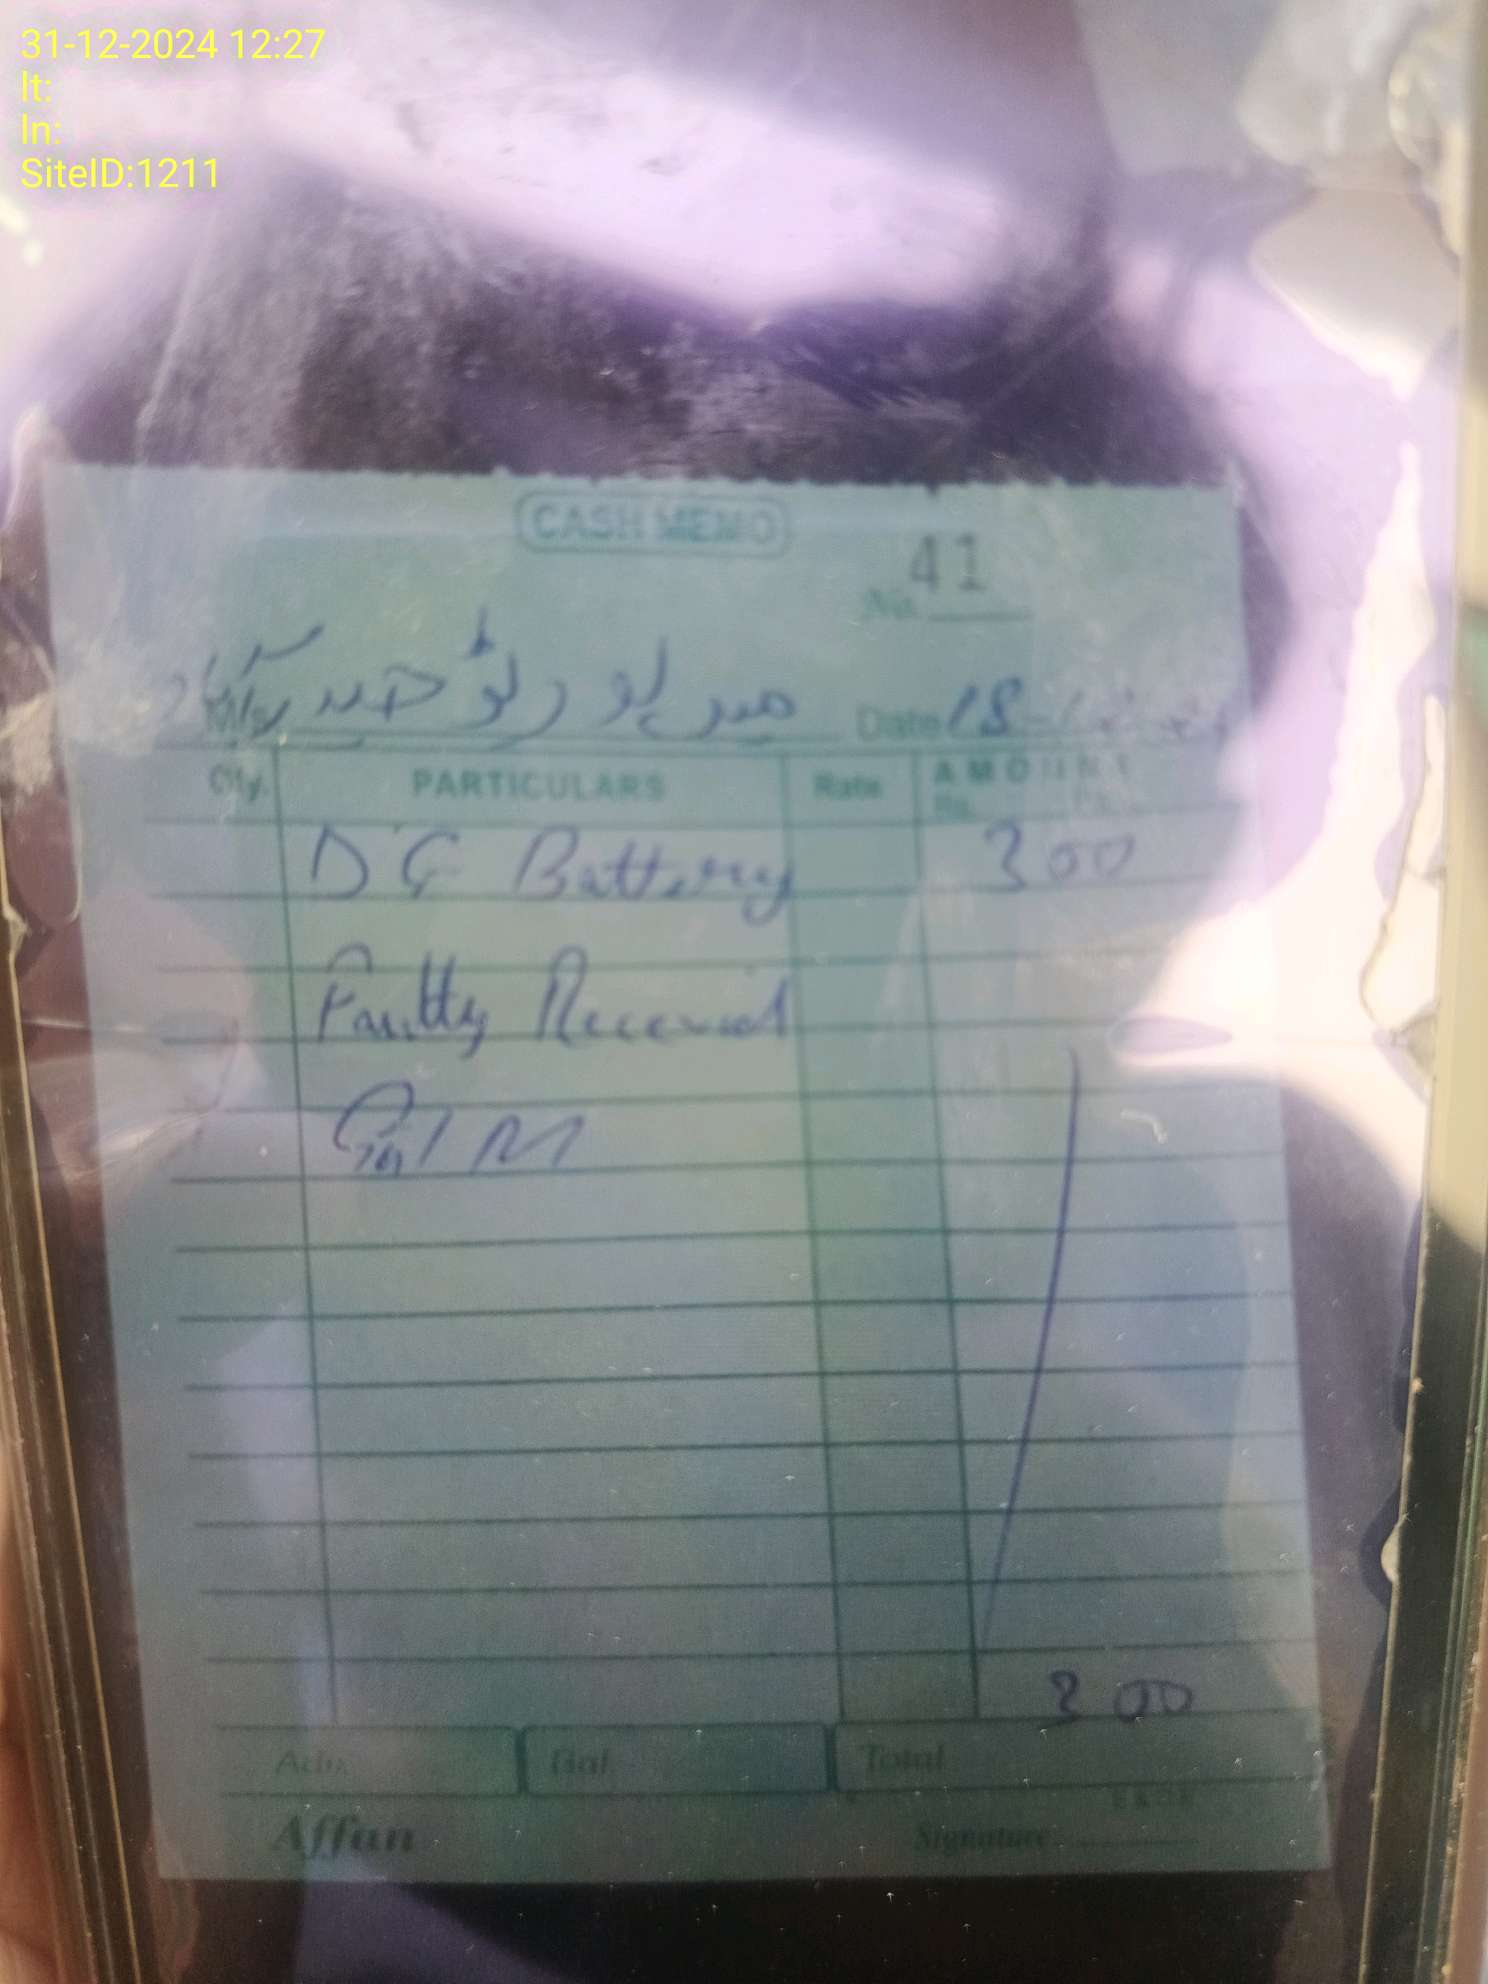 31-12-2024 12:27
lt:
ln:
SiteID:1211
CASH MEMO
No. 41
M/s میر پور روڈ حیدرآباد Date 18
Qty. PARTICULARS Rate AMOUNT
Rs. Ps.
DG Battery 300
Faulty Received
300
Adv. Bal. Total
E.&.O.E
Affan Signature